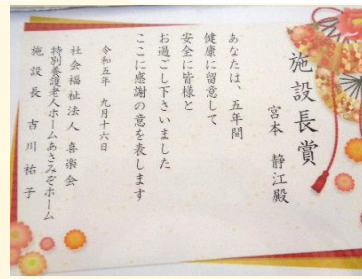 施設長賞
宮本 静江殿
あなたは、五年間
健康に留意して
安全に皆様と
お過ごし下さいました
ここに感謝の意を表します
令和五年 九月十六日
社会福祉法人 喜楽会
特別養護老人ホームあさみぞホーム
施設長 吉川祐子